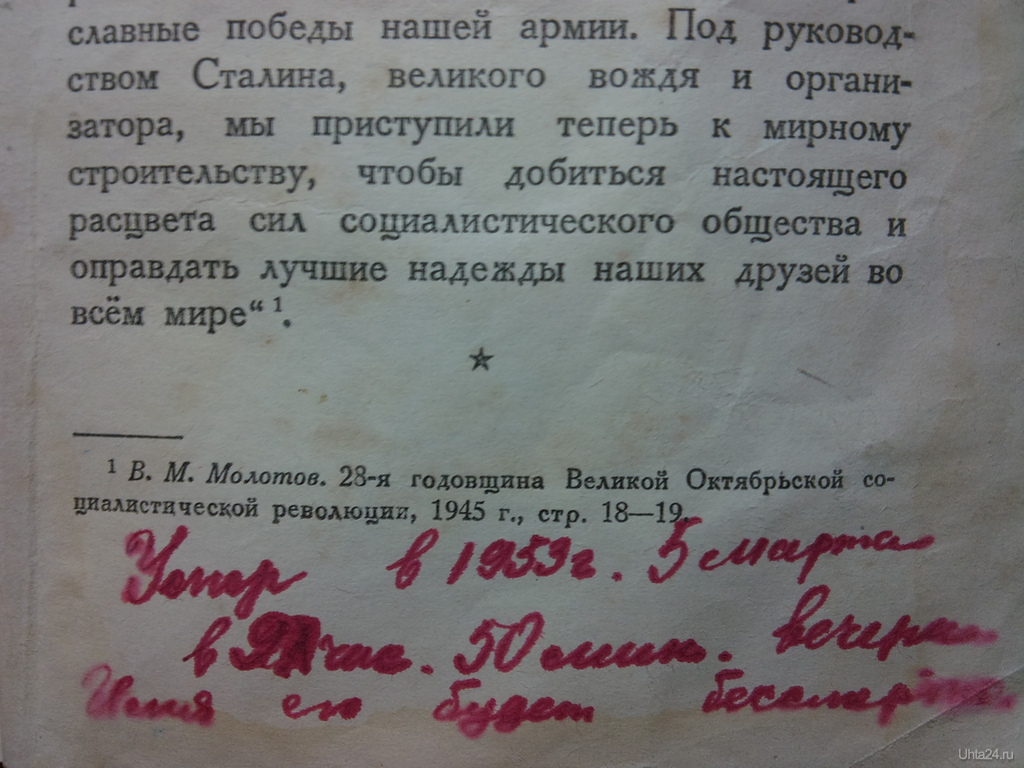 славные победы нашей армии. Под руковод-
ством Сталина, великого вождя и органи-
затора, мы приступили теперь к мирному
строительству, чтобы добиться настоящего
расцвета сил социалистического общества и
оправдать лучшие надежды наших друзей во
всём мире“ ¹.
¹ В. М. Молотов. 28-я годовщина Великой Октябрьской со-
циалистической революции, 1945 г., стр. 18—19.
Умер в 1953 г. 5 марта
в час. 50 мин. вечера
Имя его будет бессмертно.
Uhta24.ru